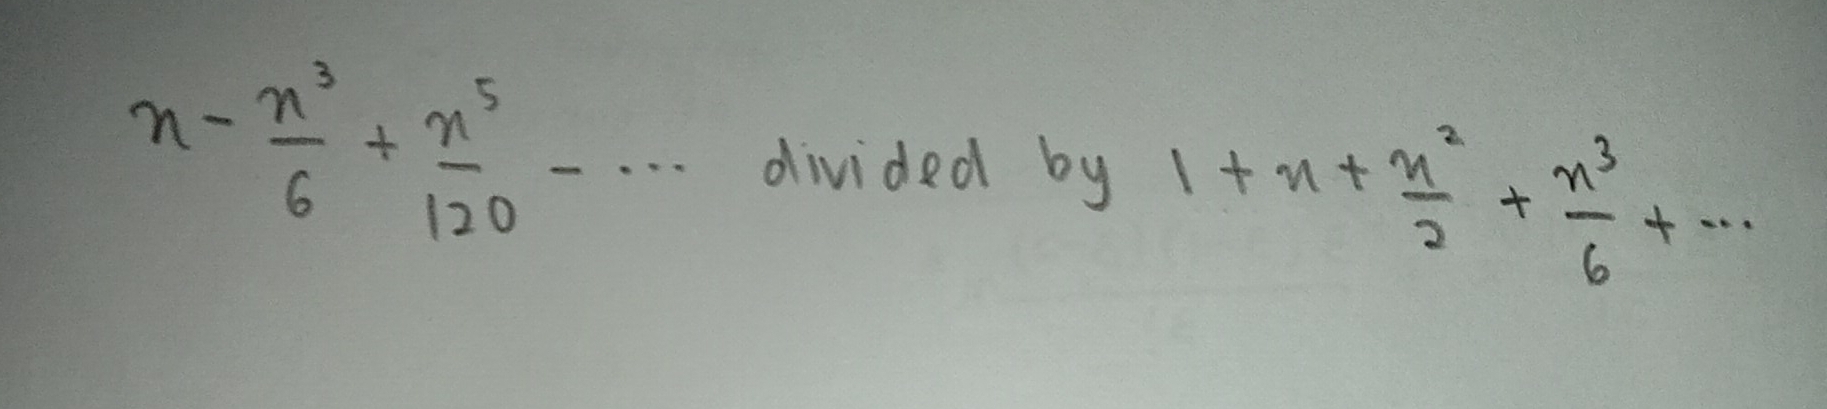 x - x³/6 + x⁵/120 - ... divided by 1 + x + x²/2 + x³/6 + ...